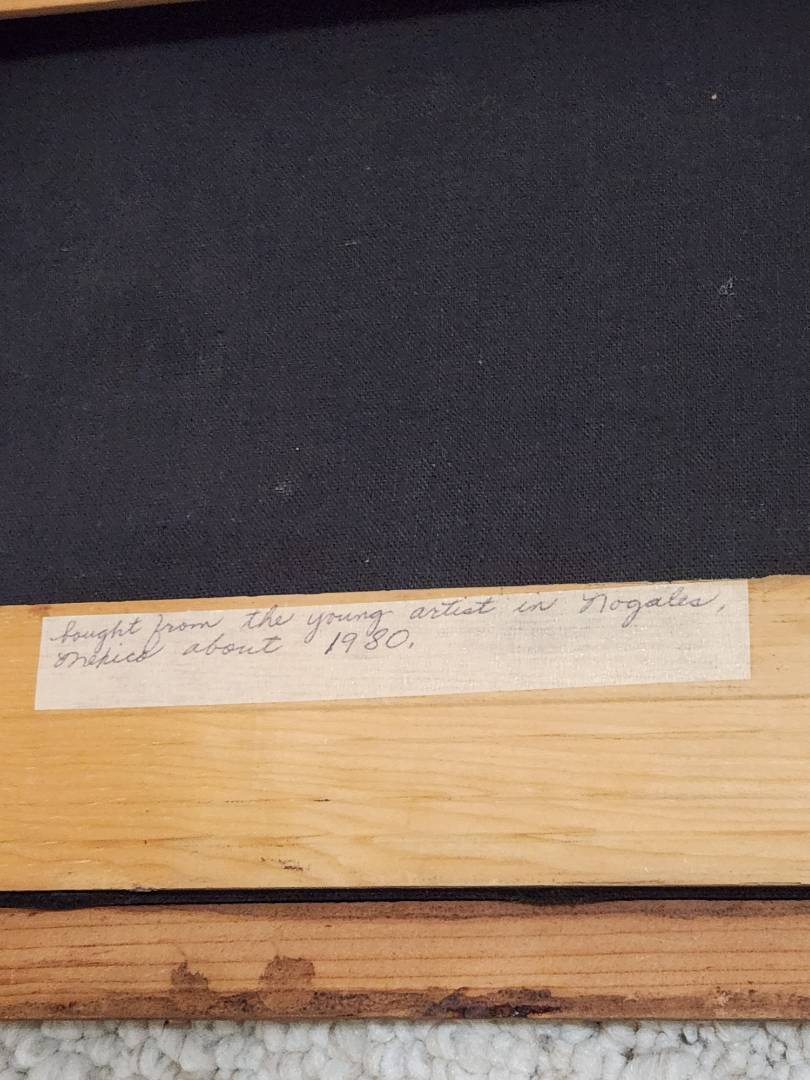 bought from the young artist in Nogales,
Mexico about 1980.